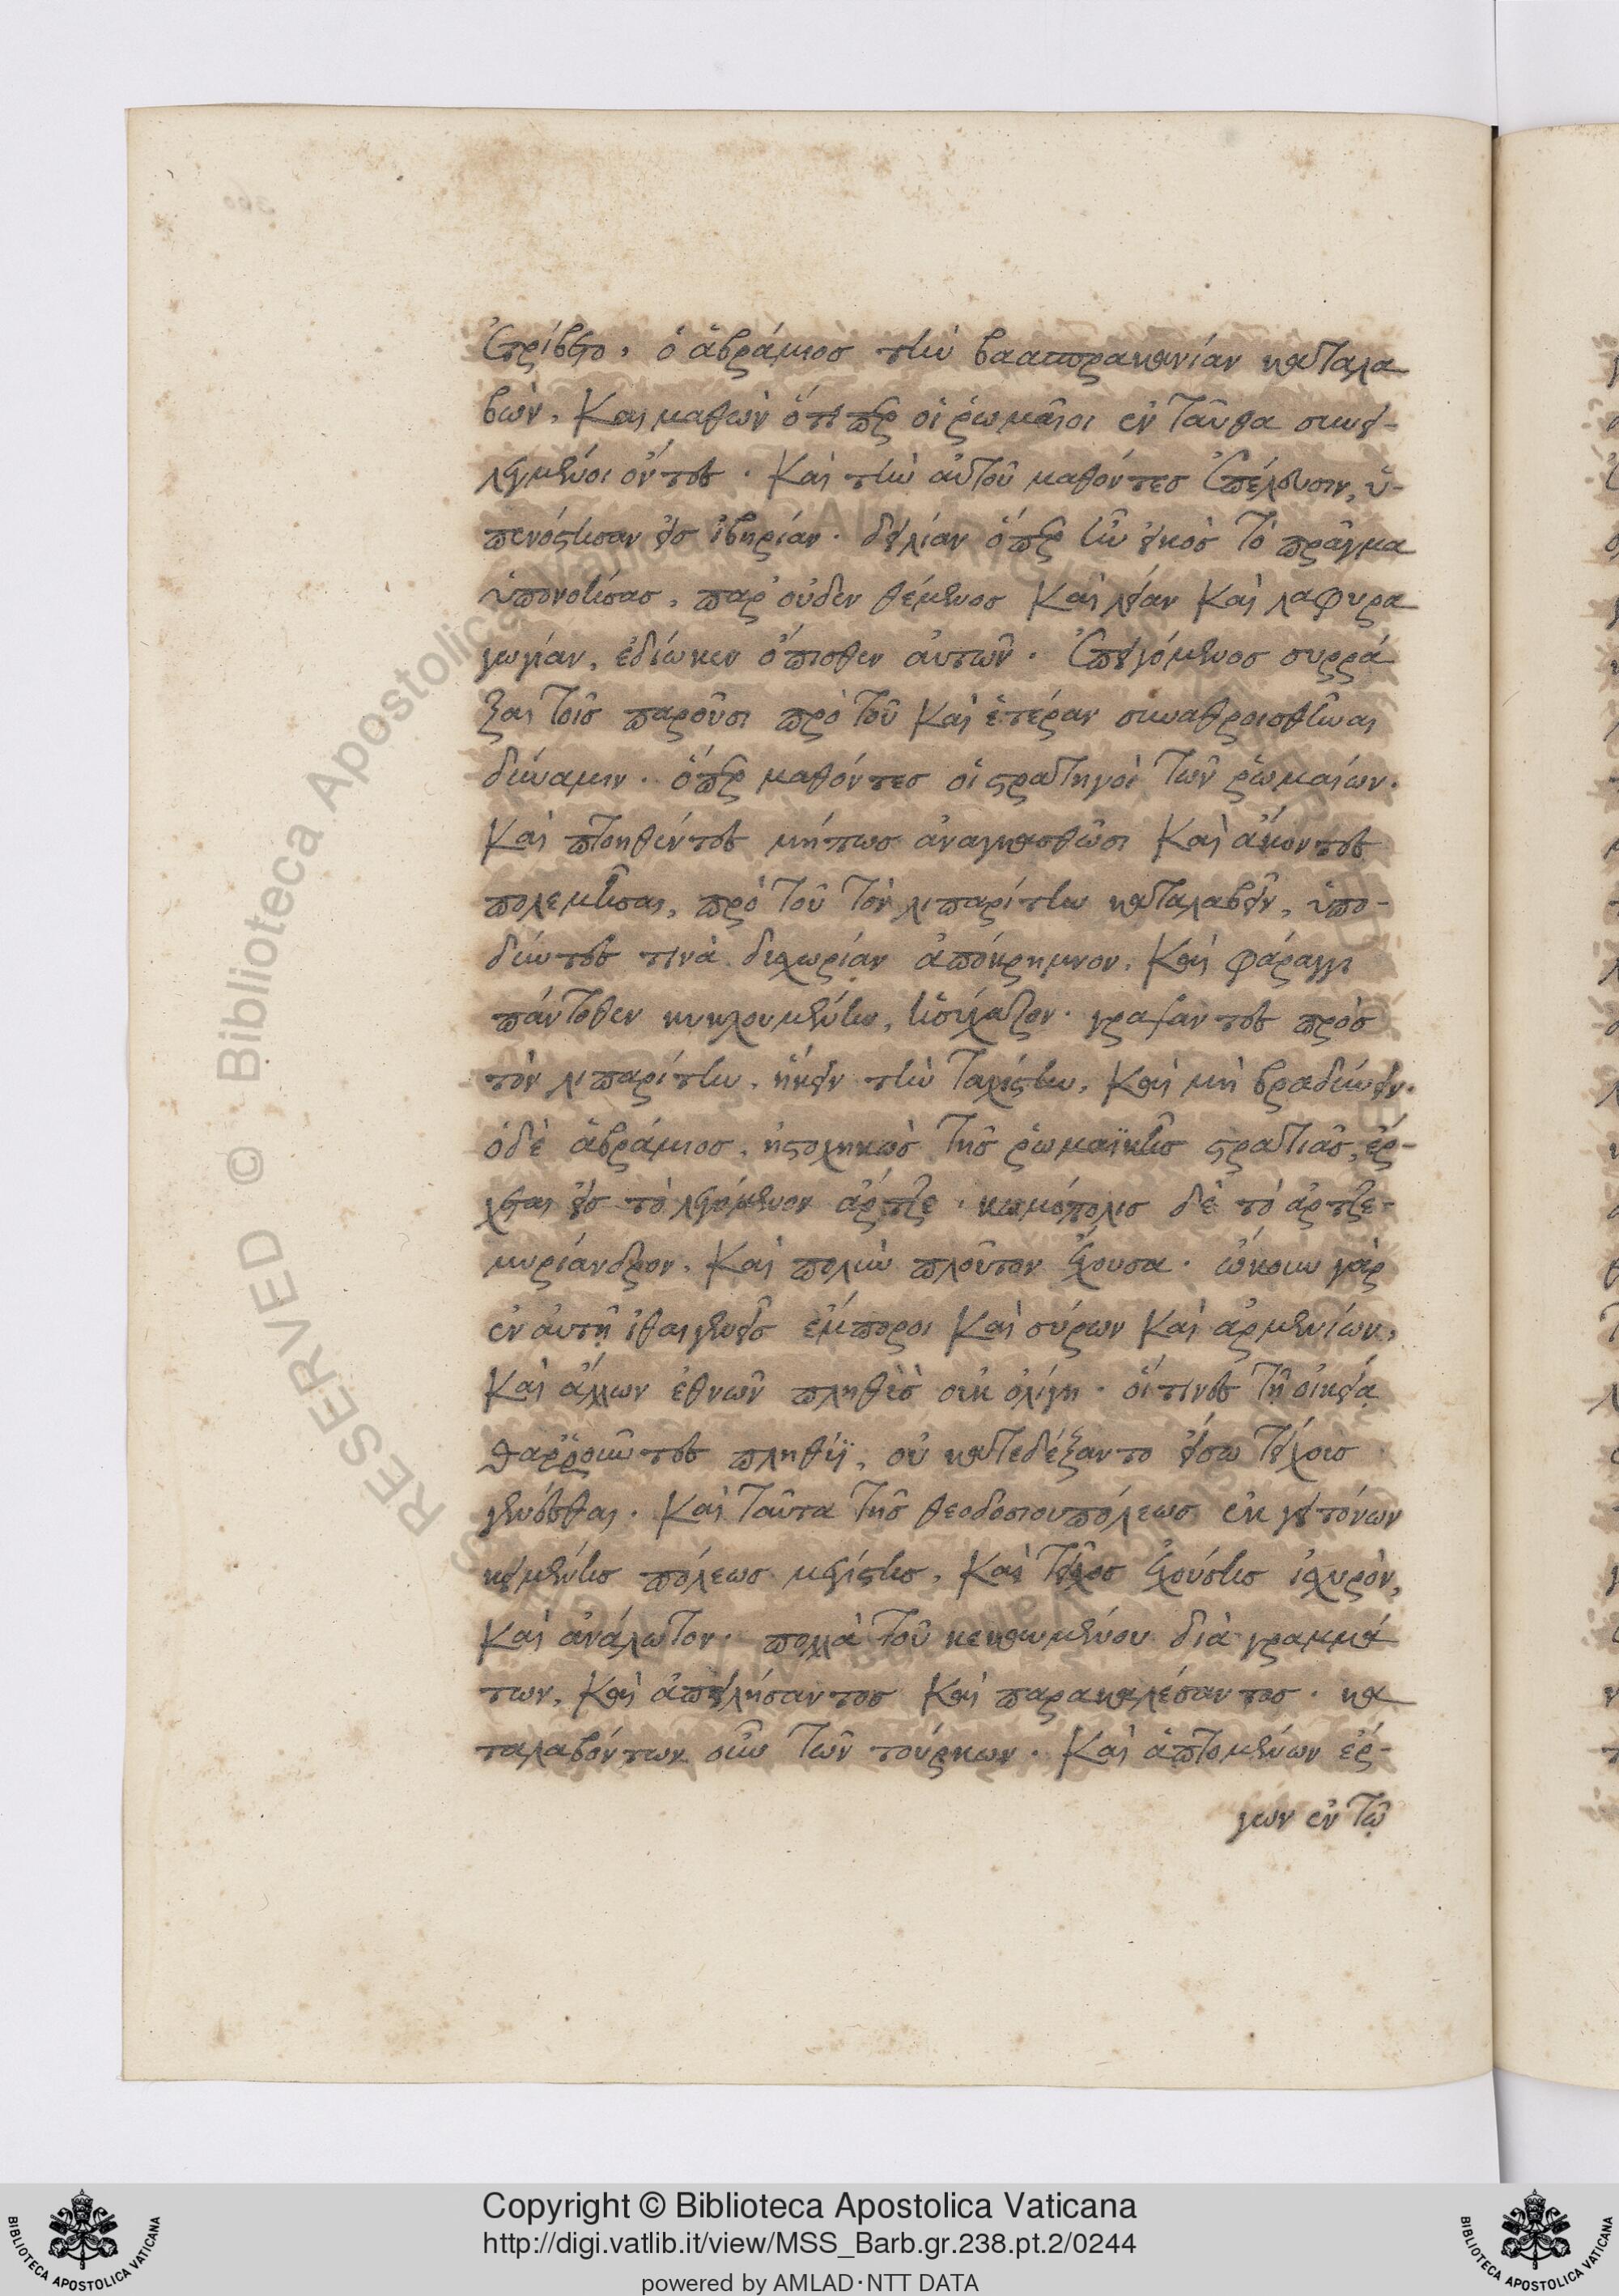 ἐτρίβετο, ὁ ἀβράμιος τὴν βαασπρακανίαν καταλα
βὼν, καὶ μαθὼν ὅτι περ οἱ ῥωμαῖοι ἐν ταῦθα συνει-
λεγμένοι ὄντες. καὶ τὴν αὐτοῦ μαθόντες ἐπέλευσιν, ὑ-
πενόστησαν εἰς ἰβηρίαν. δειλίαν ὅπερ ἦν εἰκὸς τὸ πρᾶγμα
ὑπονοήσας, παρ' οὐδὲν θέμενος καὶ λείαν καὶ λαφυρα
γωγίαν, ἐδίωκεν ὄπισθεν αὐτῶν. ἐπειγόμενος συρρά
ξαι τοῖς παροῦσι πρὸ τοῦ καὶ ἑτέραν συναθροισθῆναι
δύναμιν. ὅπερ μαθόντες οἱ στρατηγοὶ τῶν ῥωμαίων.
καὶ πτοηθέντες μήπως ἀναγκασθῶσι καὶ ἄκοντες
πολεμῆσαι, πρὸ τοῦ τὸν λιπαρίτην καταλαβεῖν, ὑπο-
δύντες τινὰ δυχωρίαν ἀπόκρημνον, καὶ φάραγγι
πάντοθεν κυκλουμένην, ἡσύχαζον. γράψαντες πρὸς
τὸν λιπαρίτην, ἥκειν τὴν ταχίστην, καὶ μὴ βραδύνειν.
ὁ δὲ ἀβράμιος, ἠστοχηκὼς τῆς ῥωμαϊκῆς στρατιᾶς, ἔρ-
χεται εἰς τὸ λεγόμενον ἄρτζε. κωμόπολις δὲ τὸ ἄρτζε-
μυρίανδρον, καὶ πολὺν πλοῦτον ἔχουσα. ᾤκουν γὰρ
ἐν αὐτῇ ἰθαιγενεῖς ἔμποροι καὶ σύρων καὶ ἀρμενίων,
καὶ ἄλλων ἐθνῶν πληθὺς οὐκ ὀλίγη. οἵ τινες τῇ οἰκείᾳ
θαρροῦντες πληθύϊ, οὐ κατεδέξαντο εἴσω τείχους
γενέσθαι. καὶ ταῦτα τῆς θεοδοσιουπόλεως ἐκ γειτόνων
κειμένης πόλεως μεγίστης, καὶ τεῖχος ἐχούσης ἰσχυρὸν,
καὶ ἀνάλωτον. πολλὰ τοῦ κεκαυμένου διὰ γραμμά
των, καὶ ἀπειλήσαντος καὶ παρακαλέσαντος. κα
ταλαβόντων οὖν τῶν τούρκων. καὶ ἁπτομένων ἔρ-
γων ἐν τῷ
RESERVED © Biblioteca Apostolica Vaticana
Copyright © Biblioteca Apostolica Vaticana
http://digi.vatlib.it/view/MSS_Barb.gr.238.pt.2/0244
powered by AMLAD·NTT DATA
BIBLIOTECA APOSTOLICA VATICANA
BIBLIOTECA APOSTOLICA VATICANA